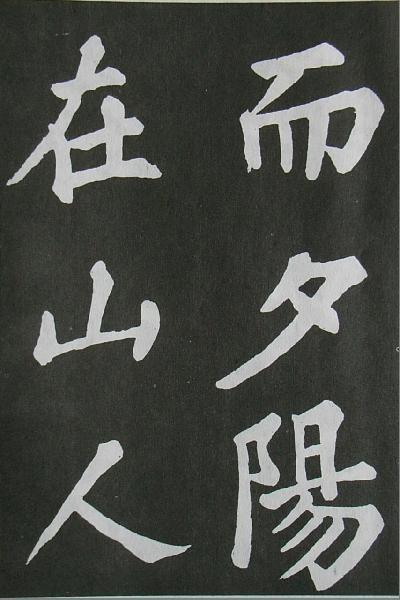 而夕陽
在山人